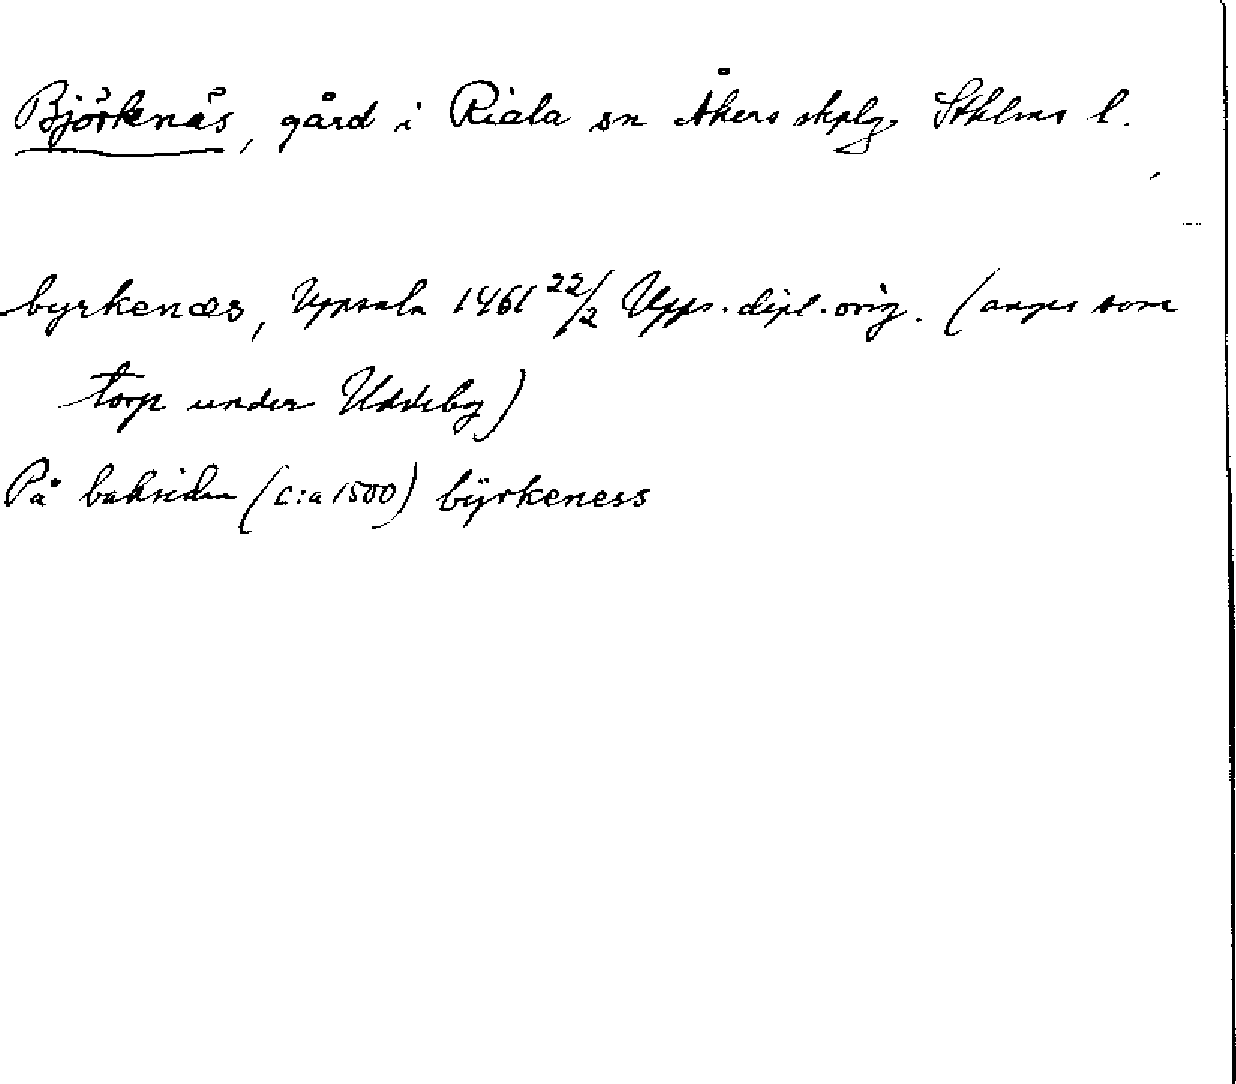 Björknäs, gård i Riala sn Åkers skplg Sthlms l.
byrkenæs, Uppsala 1461 22/2 Upps. dipl. orig. (anges som
torp under Uddeby)
På baksidan (c:a 1500) bÿrkeness